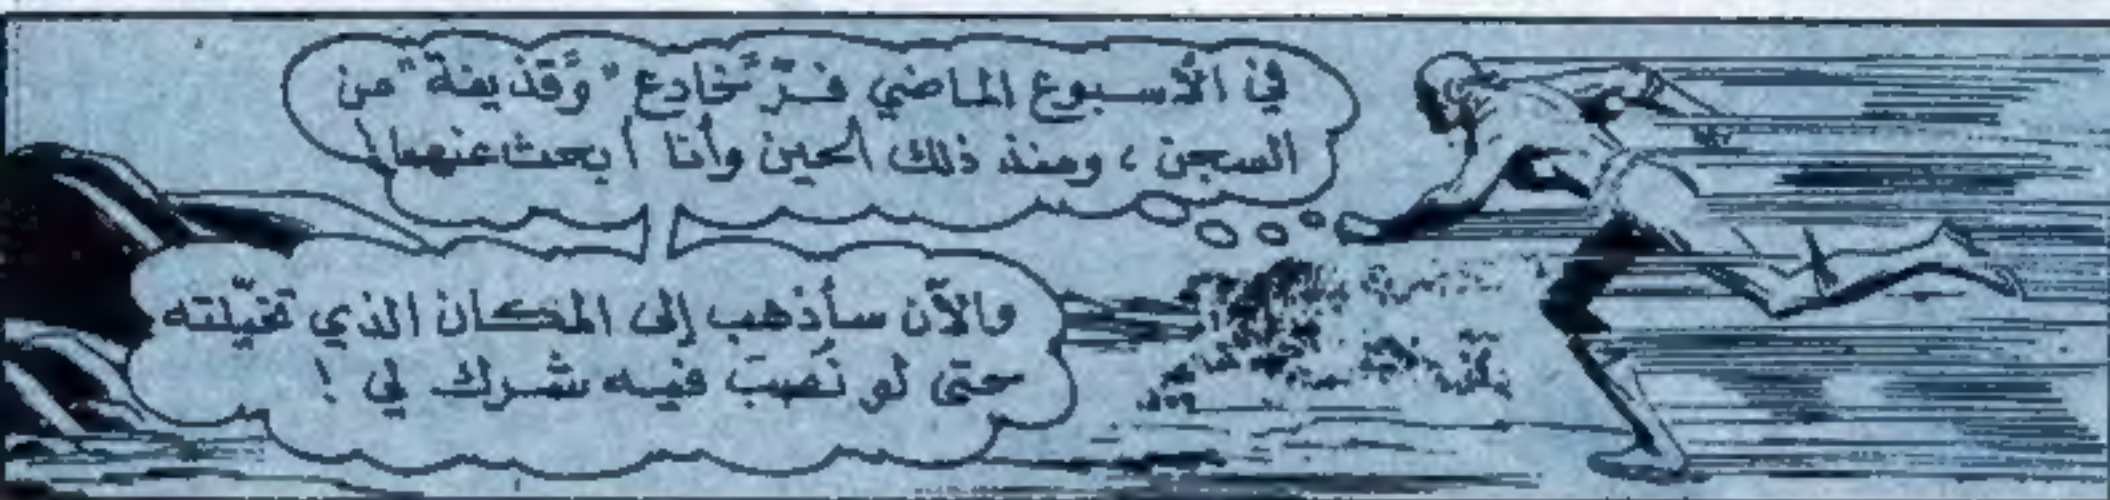 في الأسبوع الماضي فرّ "خادع" و"قذيفة" من
السجن ، ومنذ ذلك الحين وأنا أبحث عنهما !
والآن سأذهب إلى المكان الذي تخيّلته
حتى لو نُصِبَ فيه شرك لي !